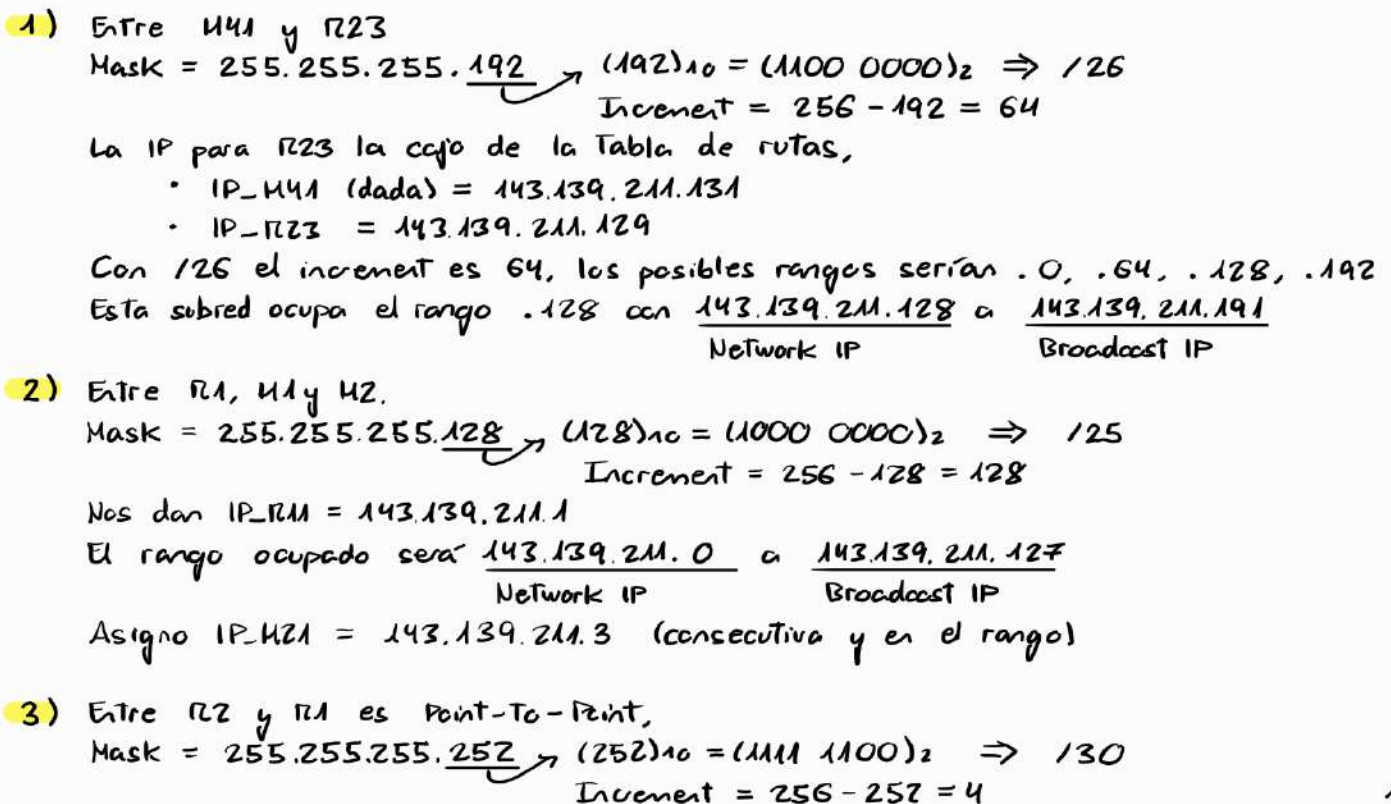 1) Entre H41 y R23
Mask = 255.255.255.192 (192)10 = (1100 0000)2 ⇒ /26
Increment = 256 - 192 = 64
La IP para R23 la cojo de la Tabla de rutas,
· IP_H41 (dada) = 143.139.211.131
· IP_R23 = 143.139.211.129
Con /26 el increment es 64, los posibles rangos serían .0, .64, .128, .192
Esta subred ocupa el rango .128 con 143.139.211.128 a 143.139.211.191
Network IP Broadcast IP
2) Entre R1, H1 y H2.
Mask = 255.255.255.128 (128)10 = (1000 0000)2 ⇒ /25
Increment = 256 - 128 = 128
Nos dan IP_R11 = 143.139.211.1
El rango ocupado será 143.139.211.0 a 143.139.211.127
Network IP Broadcast IP
Asigno IP_H21 = 143.139.211.3 (consecutiva y en el rango)
3) Entre R2 y R1 es Point-To-Point,
Mask = 255.255.255.252 (252)10 = (1111 1100)2 ⇒ /30
Increment = 256 - 252 = 4